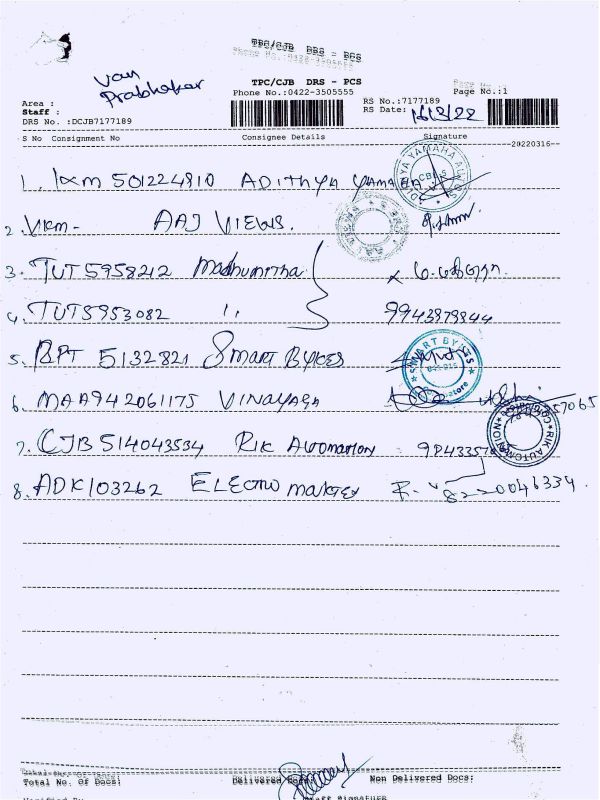 TPC/CJB DRS - PCS
Phone No.:0422-3505555
Van
Prabhakar
TPC/CJB DRS - PCS
Phone No.:0422-3505555
Page No.:1
Area :
Staff :
DRS No. :DCJB7177189
RS No.:7177189
RS Date: 16/3/22
S No Consignment No Consignee Details Signature
20220316
1. IXM 501224810 ADITHYA YAMAHA
2. VKM- AAJ VIEWS.
3. TUT5958212 Madhumitha
4. TUT5953082 " 9943879844
5. BPT 5132821 Smart Bytes
SMART BYTES
6. MAA942061175 VINAYAGA
57065
7. CJB 514043534 RIK Automation 984335
RIK AUTOMATION
8. ADK103262 ELECTRO MARTES 8220046334.
Total No. Of Docs: Delivered Docs: Non Delivered Docs:
Staff Signature